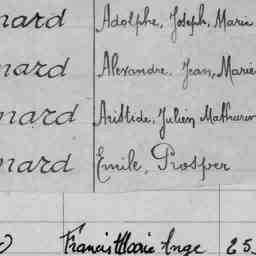 nard Adolphe, Joseph, Marie
nard Alexandre, Jean, Marie
nard Aristide, Julien Mathurin
nard Emile, Prosper
Francis Marie Ange 25